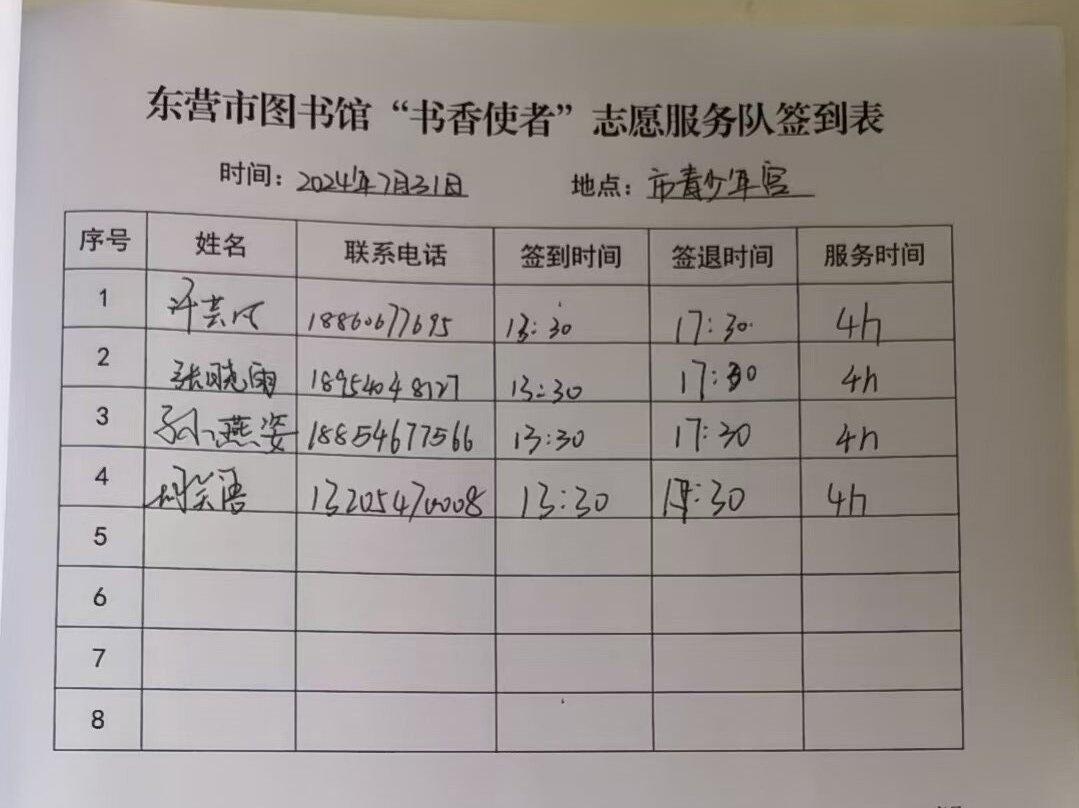 东营市图书馆“书香使者”志愿服务队签到表
时间：2024年7月31日 地点：市青少年宫
序号 姓名 联系电话 签到时间 签退时间 服务时间
1 18860677695 13:30 17:30 4h
2 张晓雨 18954048127 13:30 17:30 4h
3 孙燕姿 18854677566 13:30 17:30 4h
4 笑语 13205470008 13:30 17:30 4h
5
6
7
8